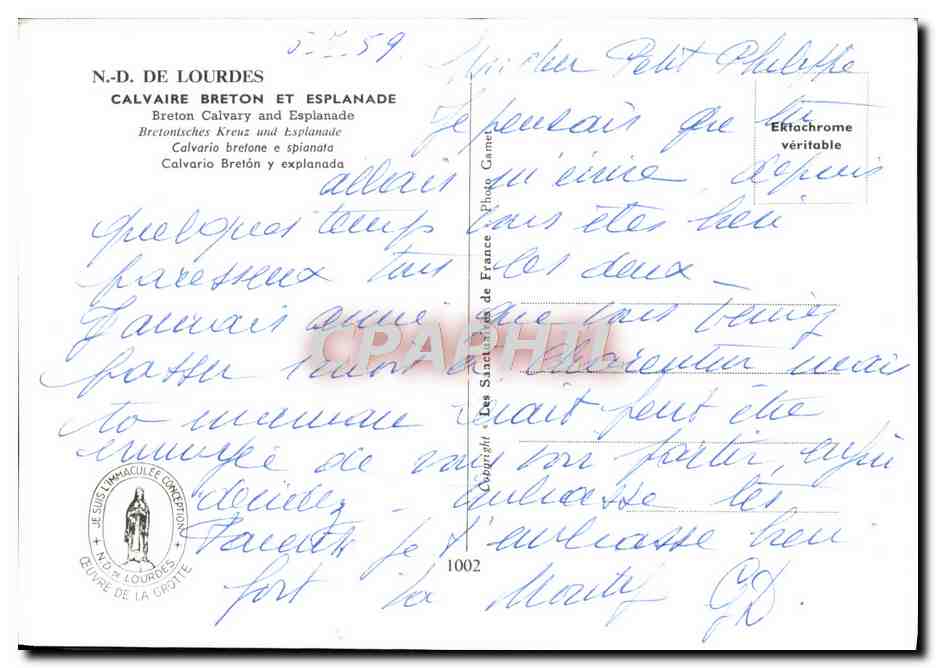 5 - 59.
Mon cher Petit Philippe
N.-D. DE LOURDES
CALVAIRE BRETON ET ESPLANADE
Breton Calvary and Esplanade
Bretonisches Kreuz und Esplanade
Calvario bretone e spianata
Calvario Bretón y explanada
Ektachrome
véritable
Je pensais que tu
allais m'écrire, depuis
quelques temps vous êtes bien
paresseux tous les deux -
J'aurais aimé que vous veniez
passer 1 mois à Charenton mais
ta maman serait peut être
ennuyée de vous voir partir, enfin
décidez - embrasse tes
Parents je t'embrasse bien
fort
GD.
CPAPHIL
Copyright - Les Sanctuaires de France - Photo Gamet
1002
JE SUIS L'IMMACULÉE CONCEPTION
N.D. DE LOURDES
ŒUVRE DE LA GROTTE